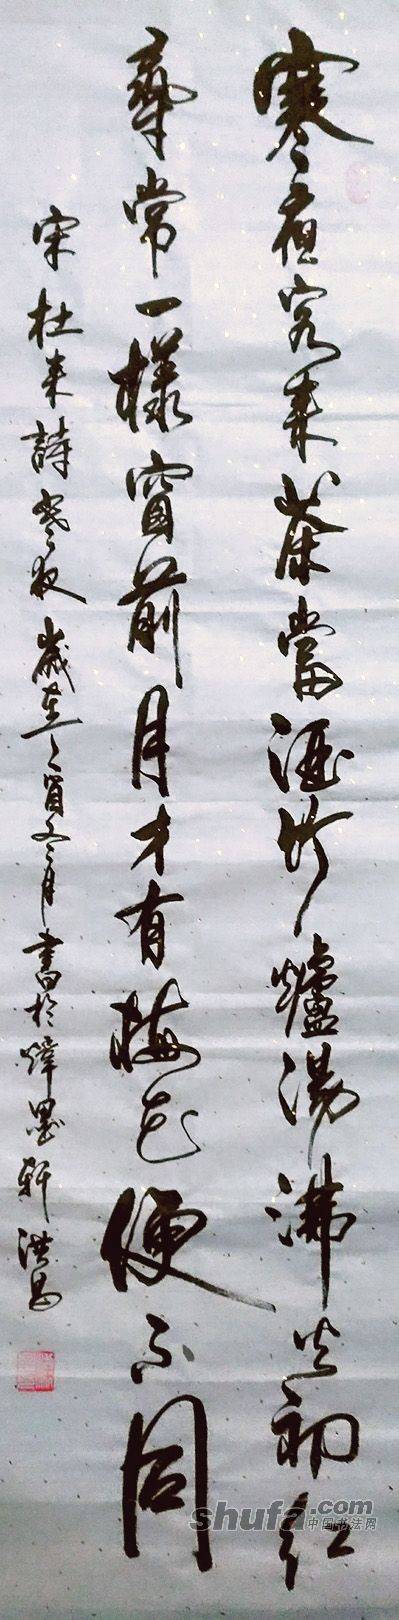 寒夜客来茶當酒竹爐湯沸火初红
尋常一樣窗前月才有梅花便不同
宋杜来詩寒夜歲在寅冬月書於墨軒
shufa.com
中国书法网